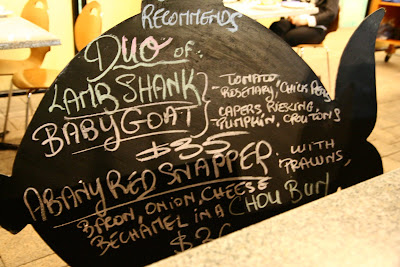 RECOMMENDS
DUO OF:
LAMB SHANK
BABY GOAT
- TOMATO,
ROSEMARY, CHICK PEAS
CAPERS, RIESLING,
PUMPKIN, CROUTONS
$35
ABANY RED SNAPPER - WITH
PRAWNS,
ONION, CHEESE
BECHAMEL IN A CHOU BUN